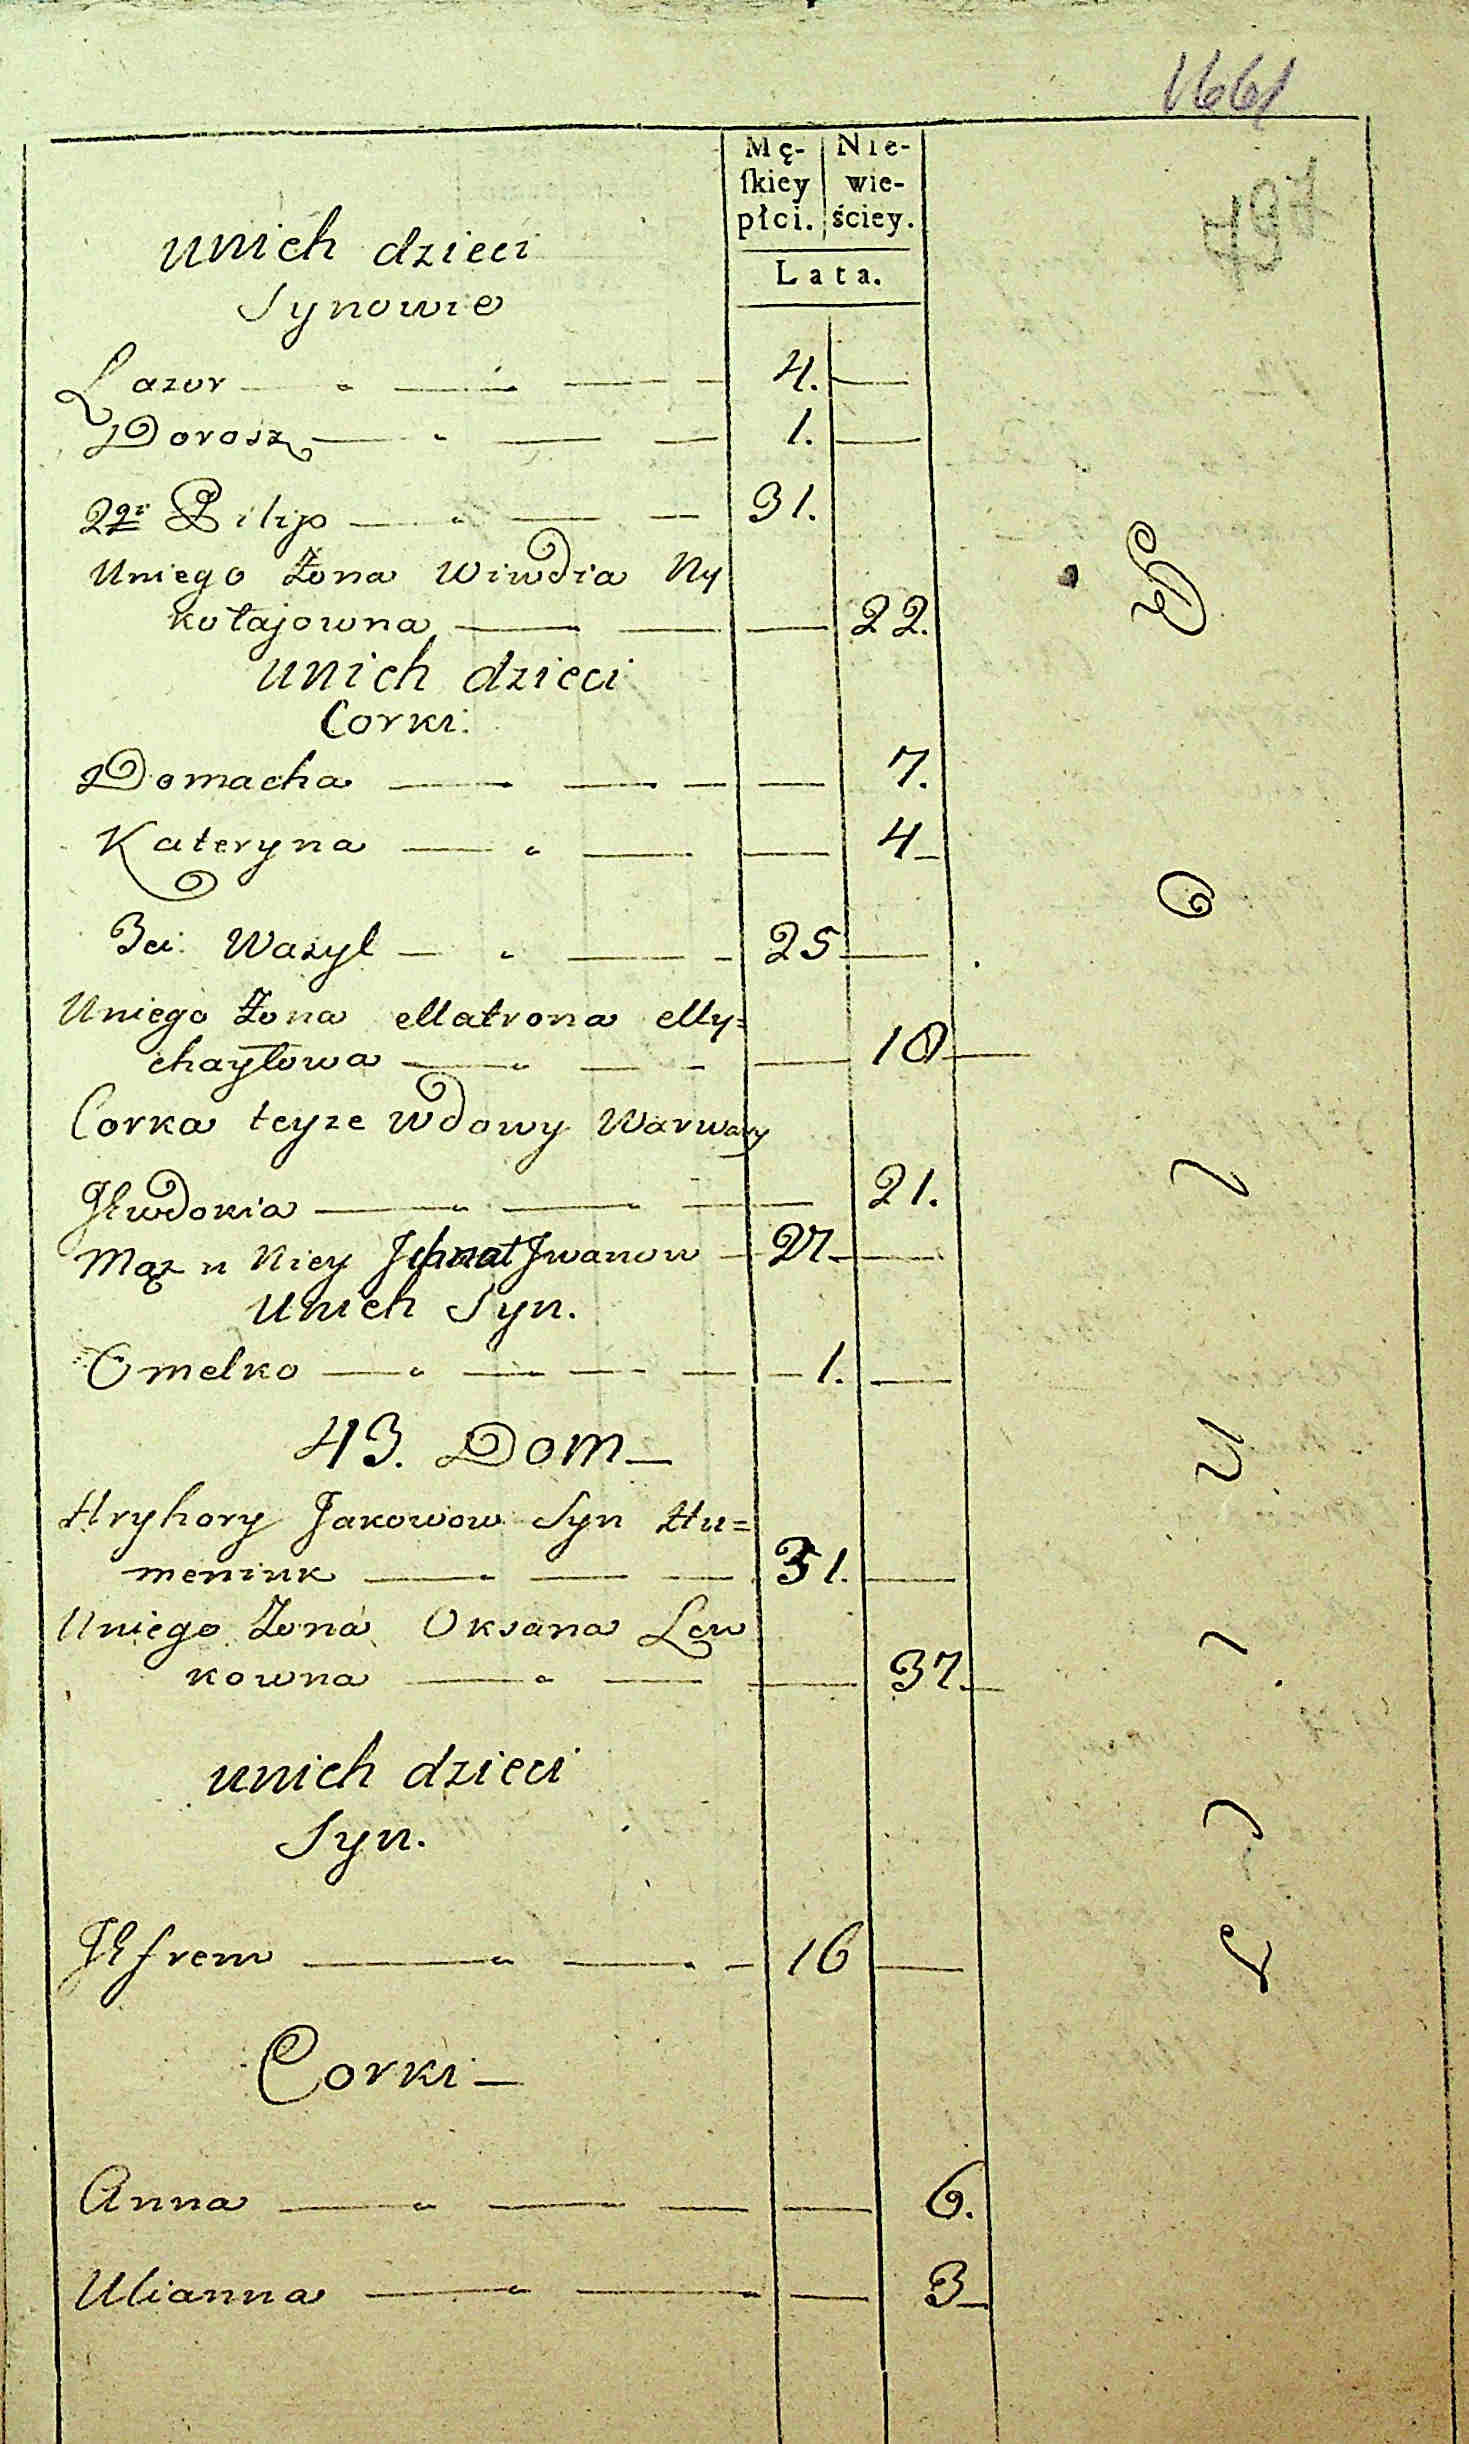 Mę- Nie-
ſkiey wie-
płci. ściey.
Lata.
unich dzieci
Synowie
Łazor 4.
Dorosz 1.
2gi Pilip 31.
Uniego Żona Wiwdia Ny
kołajowna 22.
unich dzieci
Corki.
Domacha 7.
Kateryna 4
3ci Wasyl 25
Uniego Żona Matrona My=
chayłowa 18
Corka teyże Wdowy Warwary
Jewdokia 21.
Mąż u Niey Jhnat Jwanow 27
Unich Syn.
Omelko 1.
43. Dom
Hryhory Jakowow Syn Hu=
meniuk 31.
Uniego Żona Oksana Lew
kowna 37.
unich dzieci
Syn.
Jefrem 16
Corki
Anna 6.
Ulianna 3